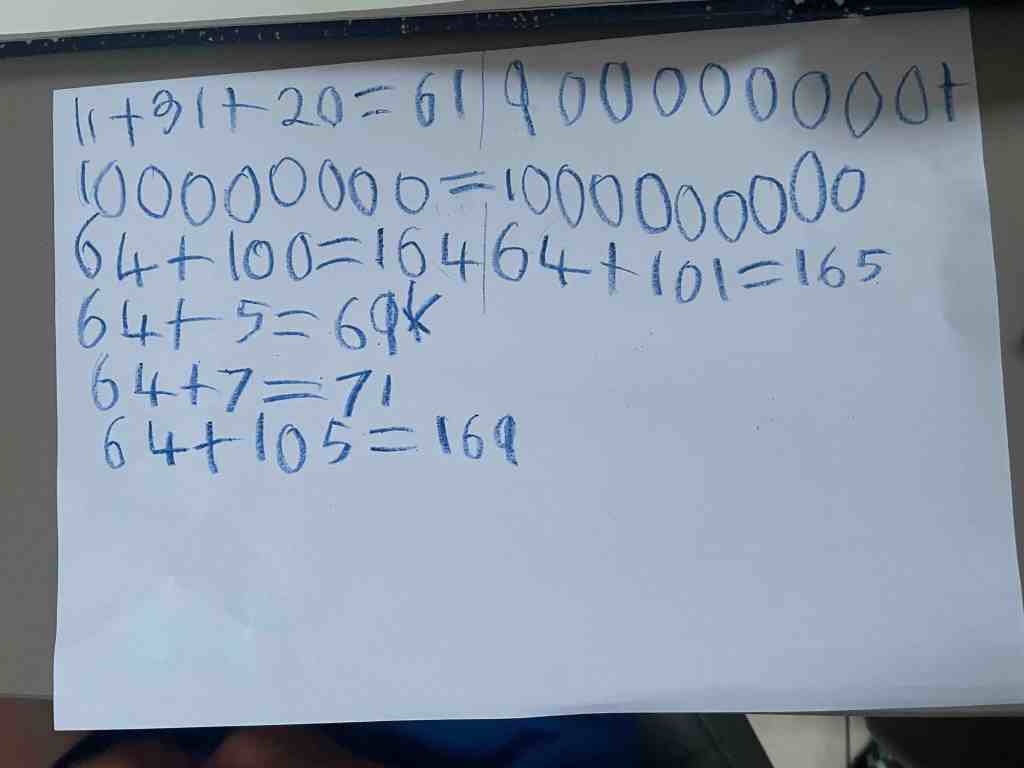 11+31+20=61|900000000+
100000000=1000000000
64+100=164|64+101=165
64+5=69k
64+7=71
64+105=169